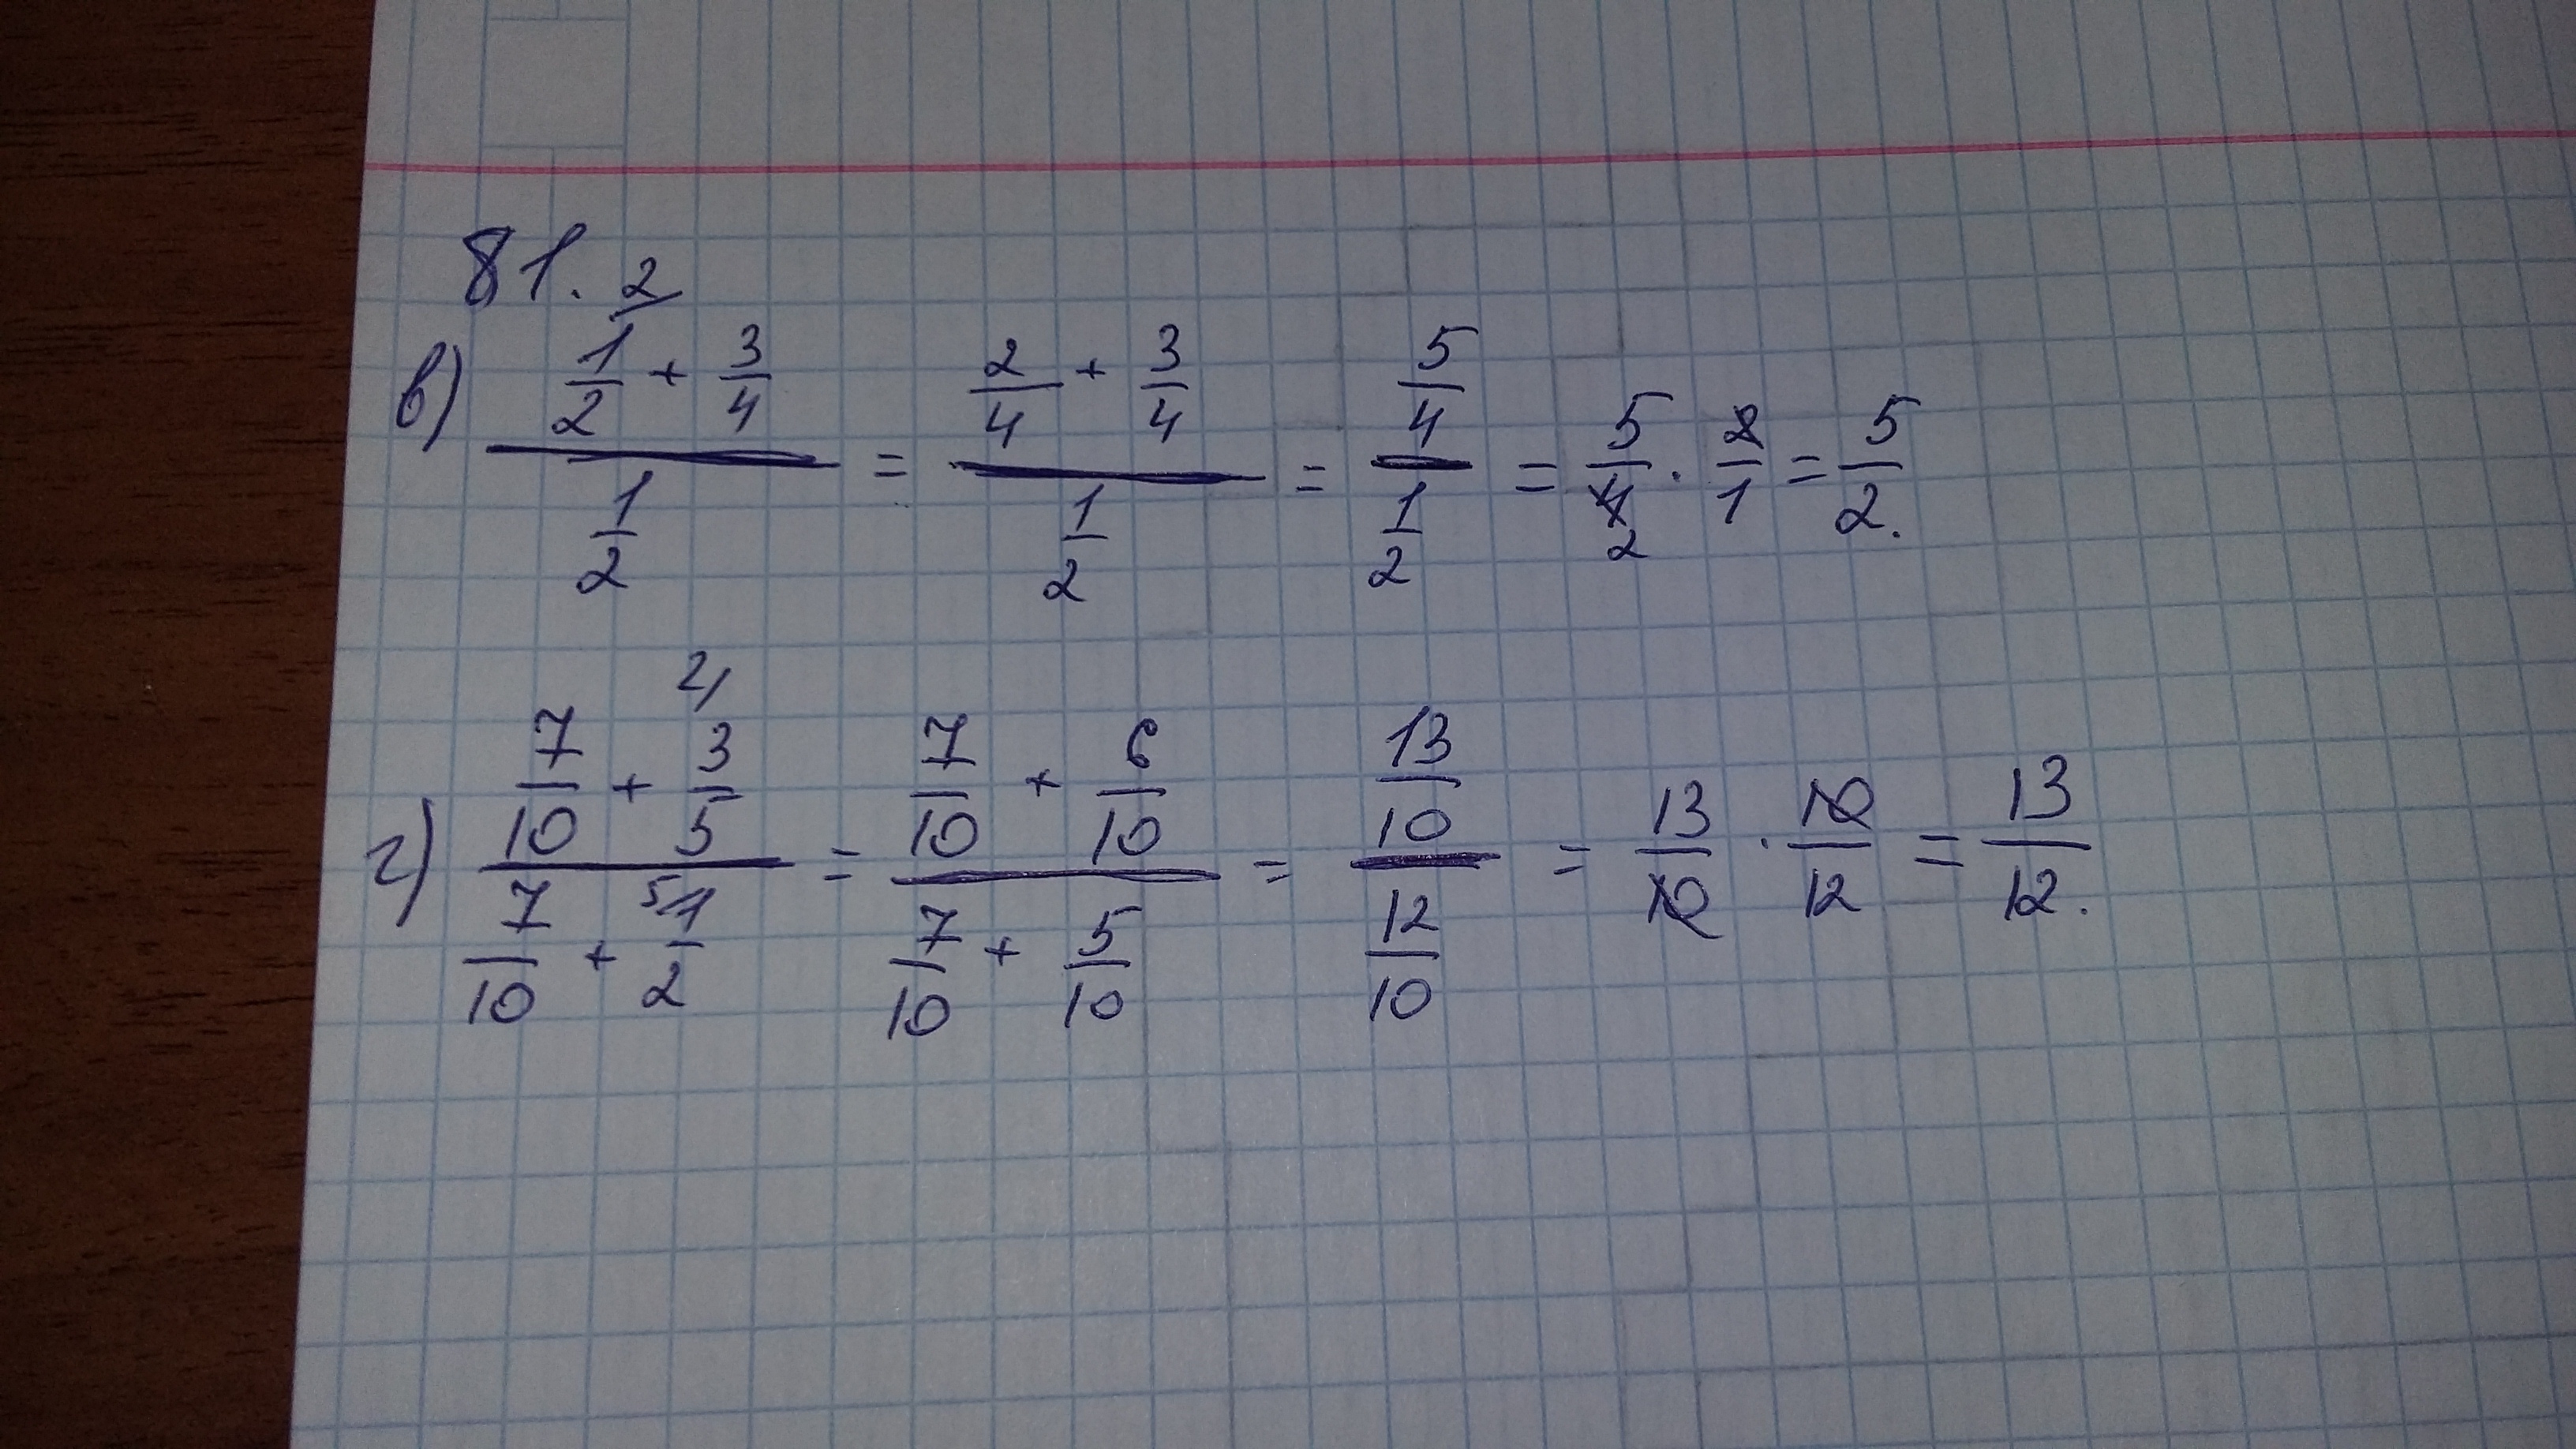 81.
в) (²⁄ 1/2 + 3/4)/(1/2) = (2/4 + 3/4)/(1/2) = (5/4)/(1/2) = 5/4 2 · 2/1 = 5/2.
г) (7/10 + ²⁄ 3/5)/(7/10 + ⁵⁄ 1/2) = (7/10 + 6/10)/(7/10 + 5/10) = (13/10)/(12/10) = 13/10 · 10/12 = 13/12.